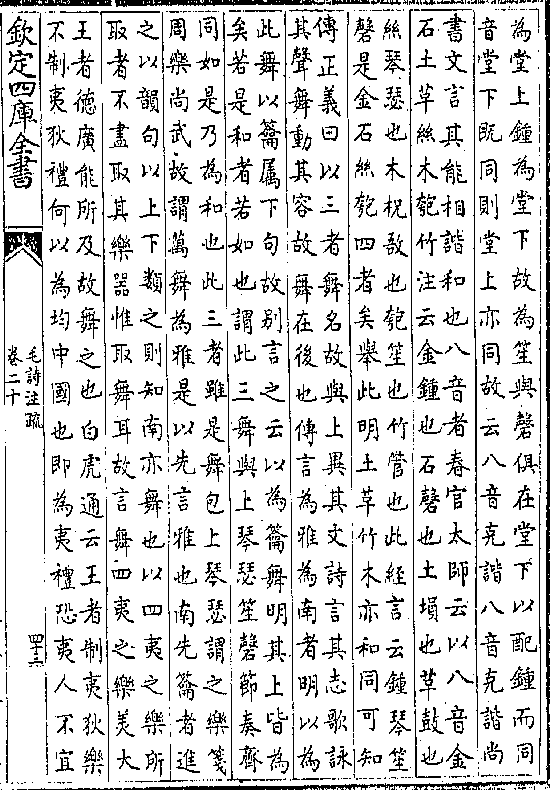 為堂上鍾為堂下故為笙與磬俱在堂下以配鍾而同
音堂下旣同則堂上亦同故云八音克諧八音克諧尚
書文言其能相諧和也八音者春官太師云以八音金
石土革絲木匏竹注云金鍾也石磬也土塤也革鼓也
絲琴瑟也木柷敔也匏笙也竹管也此經言云鍾琴笙
磬是金石絲匏四者矣舉此明土革竹木亦和同可知
傳正義曰以三者舞名故與上異其文詩言其志歌詠
其聲舞動其容故舞在後也傳言為雅為南者明以為
此舞以籥属下句故别言之云以為籥舞明其上皆為
矣若是和者若如也謂此三舞與上琴瑟笙磬節奏齊
同如是乃為和也此三者雖是舞包上琴瑟謂之樂箋
周樂尚武故謂萬舞為雅是以先言雅也南先籥者進
之以韻句以上下類之則知南亦舞也以四夷之樂所
取者不盡取其樂器惟取舞耳故言舞四夷之樂美大
王者德廣能所及故舞之也白虎通云王者制夷狄樂
不制夷狄禮何以為均中國也即為夷禮恐夷人不宜
欽定四庫全書
毛詩注疏
卷二十
四十三